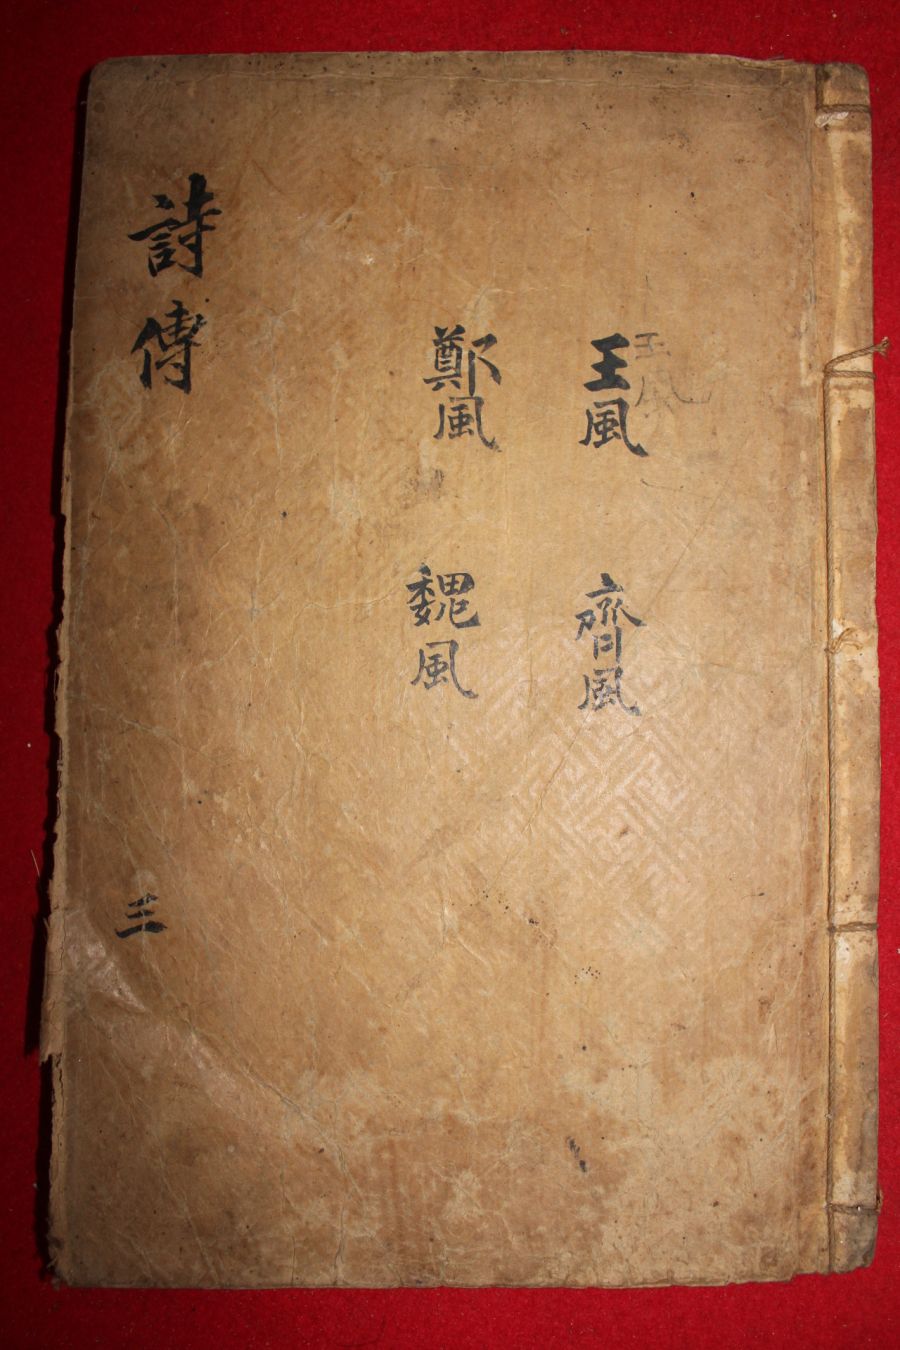 詩傳
三
王風
鄭風
齊風
魏風
王風